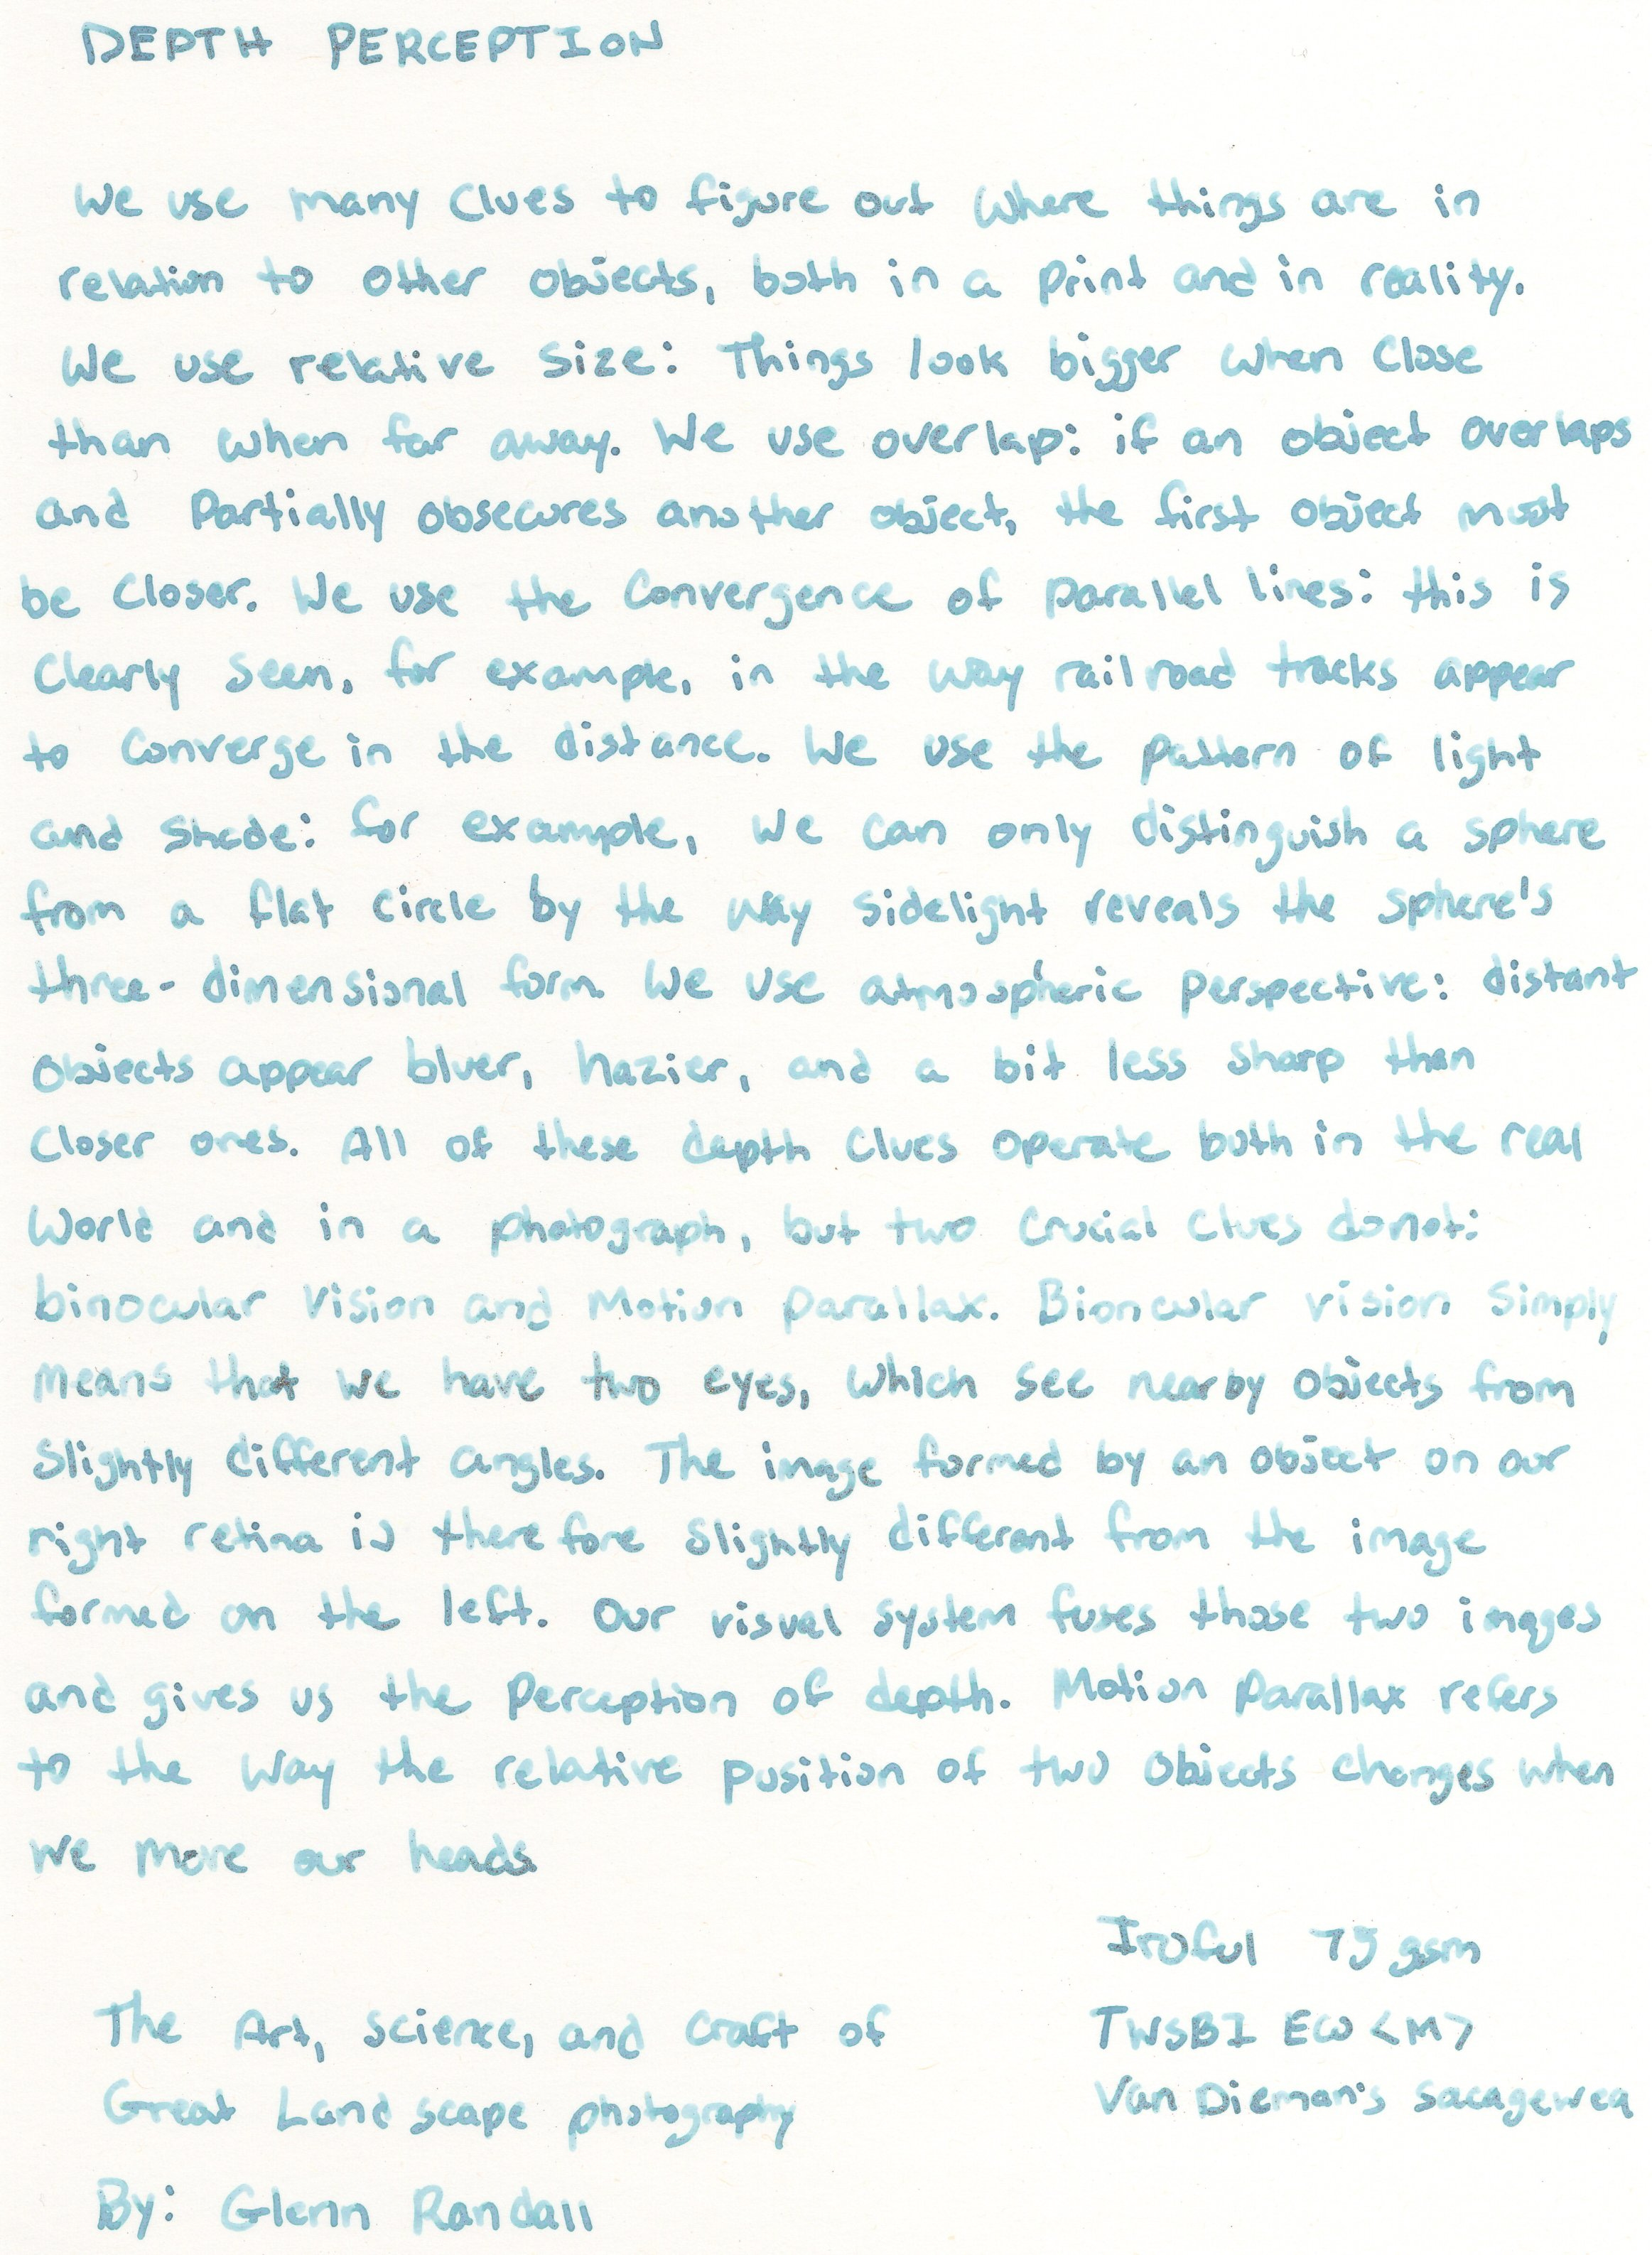 DEPTH PERCEPTION
We use many clues to figure out where things are in
relation to other objects, both in a print and in reality.
We use relative size: Things look bigger when close
than when far away. We use overlap: if an object overlaps
and partially obsecures another object, the first object must
be closer. We use the convergence of parallel lines: this is
clearly seen, for example, in the way railroad tracks appear
to converge in the distance. We use the pattern of light
and shade: for example, we can only distinguish a sphere
from a flat circle by the way sidelight reveals the sphere's
three-dimensional form. We use atmospheric perspective: distant
objects appear bluer, hazier, and a bit less sharp than
closer ones. All of these depth clues operate both in the real
world and in a photograph, but two crucial clues do not:
binocular vision and motion parallax. Bioncular vision simply
means that we have two eyes, which see nearby objects from
slightly different angles. The image formed by an object on our
right retina is therefore slightly different from the image
formed on the left. Our visual system fuses those two images
and gives us the perception of depth. Motion parallax refers
to the way the relative position of two objects changes when
we move our heads.
Iroful 75 gsm
TWSBI ECO <M>
Van Dieman's Sacagewea
The Art, Science, and Craft of
Great Landscape photography
By: Glenn Randall